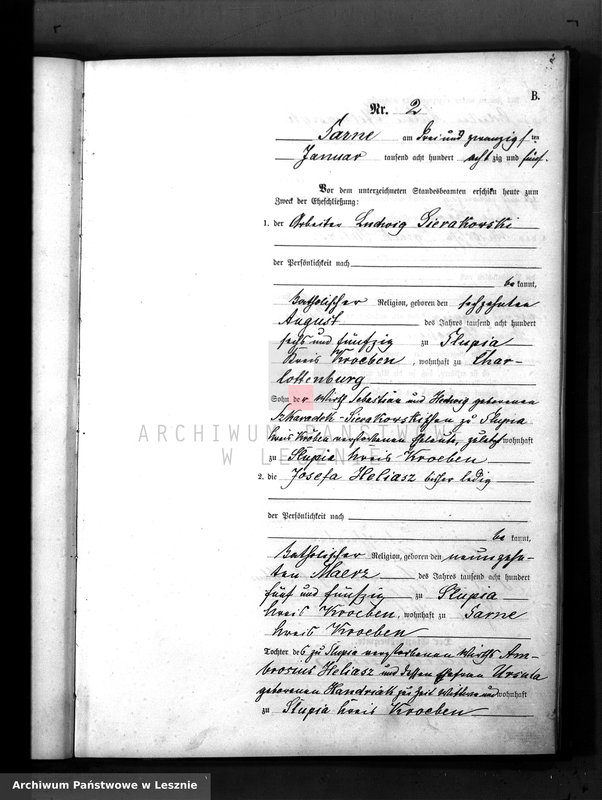 B.
Nr. 2
Sarne am drei und zwanzigsten
Januar tausend acht hundert achtzig und fünf.
Vor dem unterzeichneten Standesbeamten erschien heute zum
Zweck der Eheschließung:
1. der Arbeiter Ludwig Sierakowski
der Persönlichkeit nach
be kannt,
katholischer Religion, geboren den sechzehnten
August des Jahres tausend acht hundert
sechs und fünfzig zu Slupia
Kreis Kroeben, wohnhaft zu Char-
lottenburg
Sohn der Wirth Sebastian und Hedwig geborenen
Sierakowskischen zu Slupia
Kreis Kröben verstorbenen Eheleute, zuletzt wohnhaft
zu Slupia Kreis Kroeben
2. die Josefa Heliasz bisher ledig
der Persönlichkeit nach
be kannt,
katholischer Religion, geboren den neunzehn-
ten Maerz des Jahres tausend acht hundert
fünf und fünfzig zu Slupia
Kreis Kroeben, wohnhaft zu Sarne
Kreis Kroeben
Tochter des zu Slupia verstorbenen Wirths Am-
brosius Heliasz und dessen Ehefrau Ursula
geborenen Handriak zur Zeit Wittwe und wohnhaft
zu Slupia Kreis Kroeben
ARCHIWUM PAŃSTWOWE
W LESZNIE
Archiwum Państwowe w Lesznie